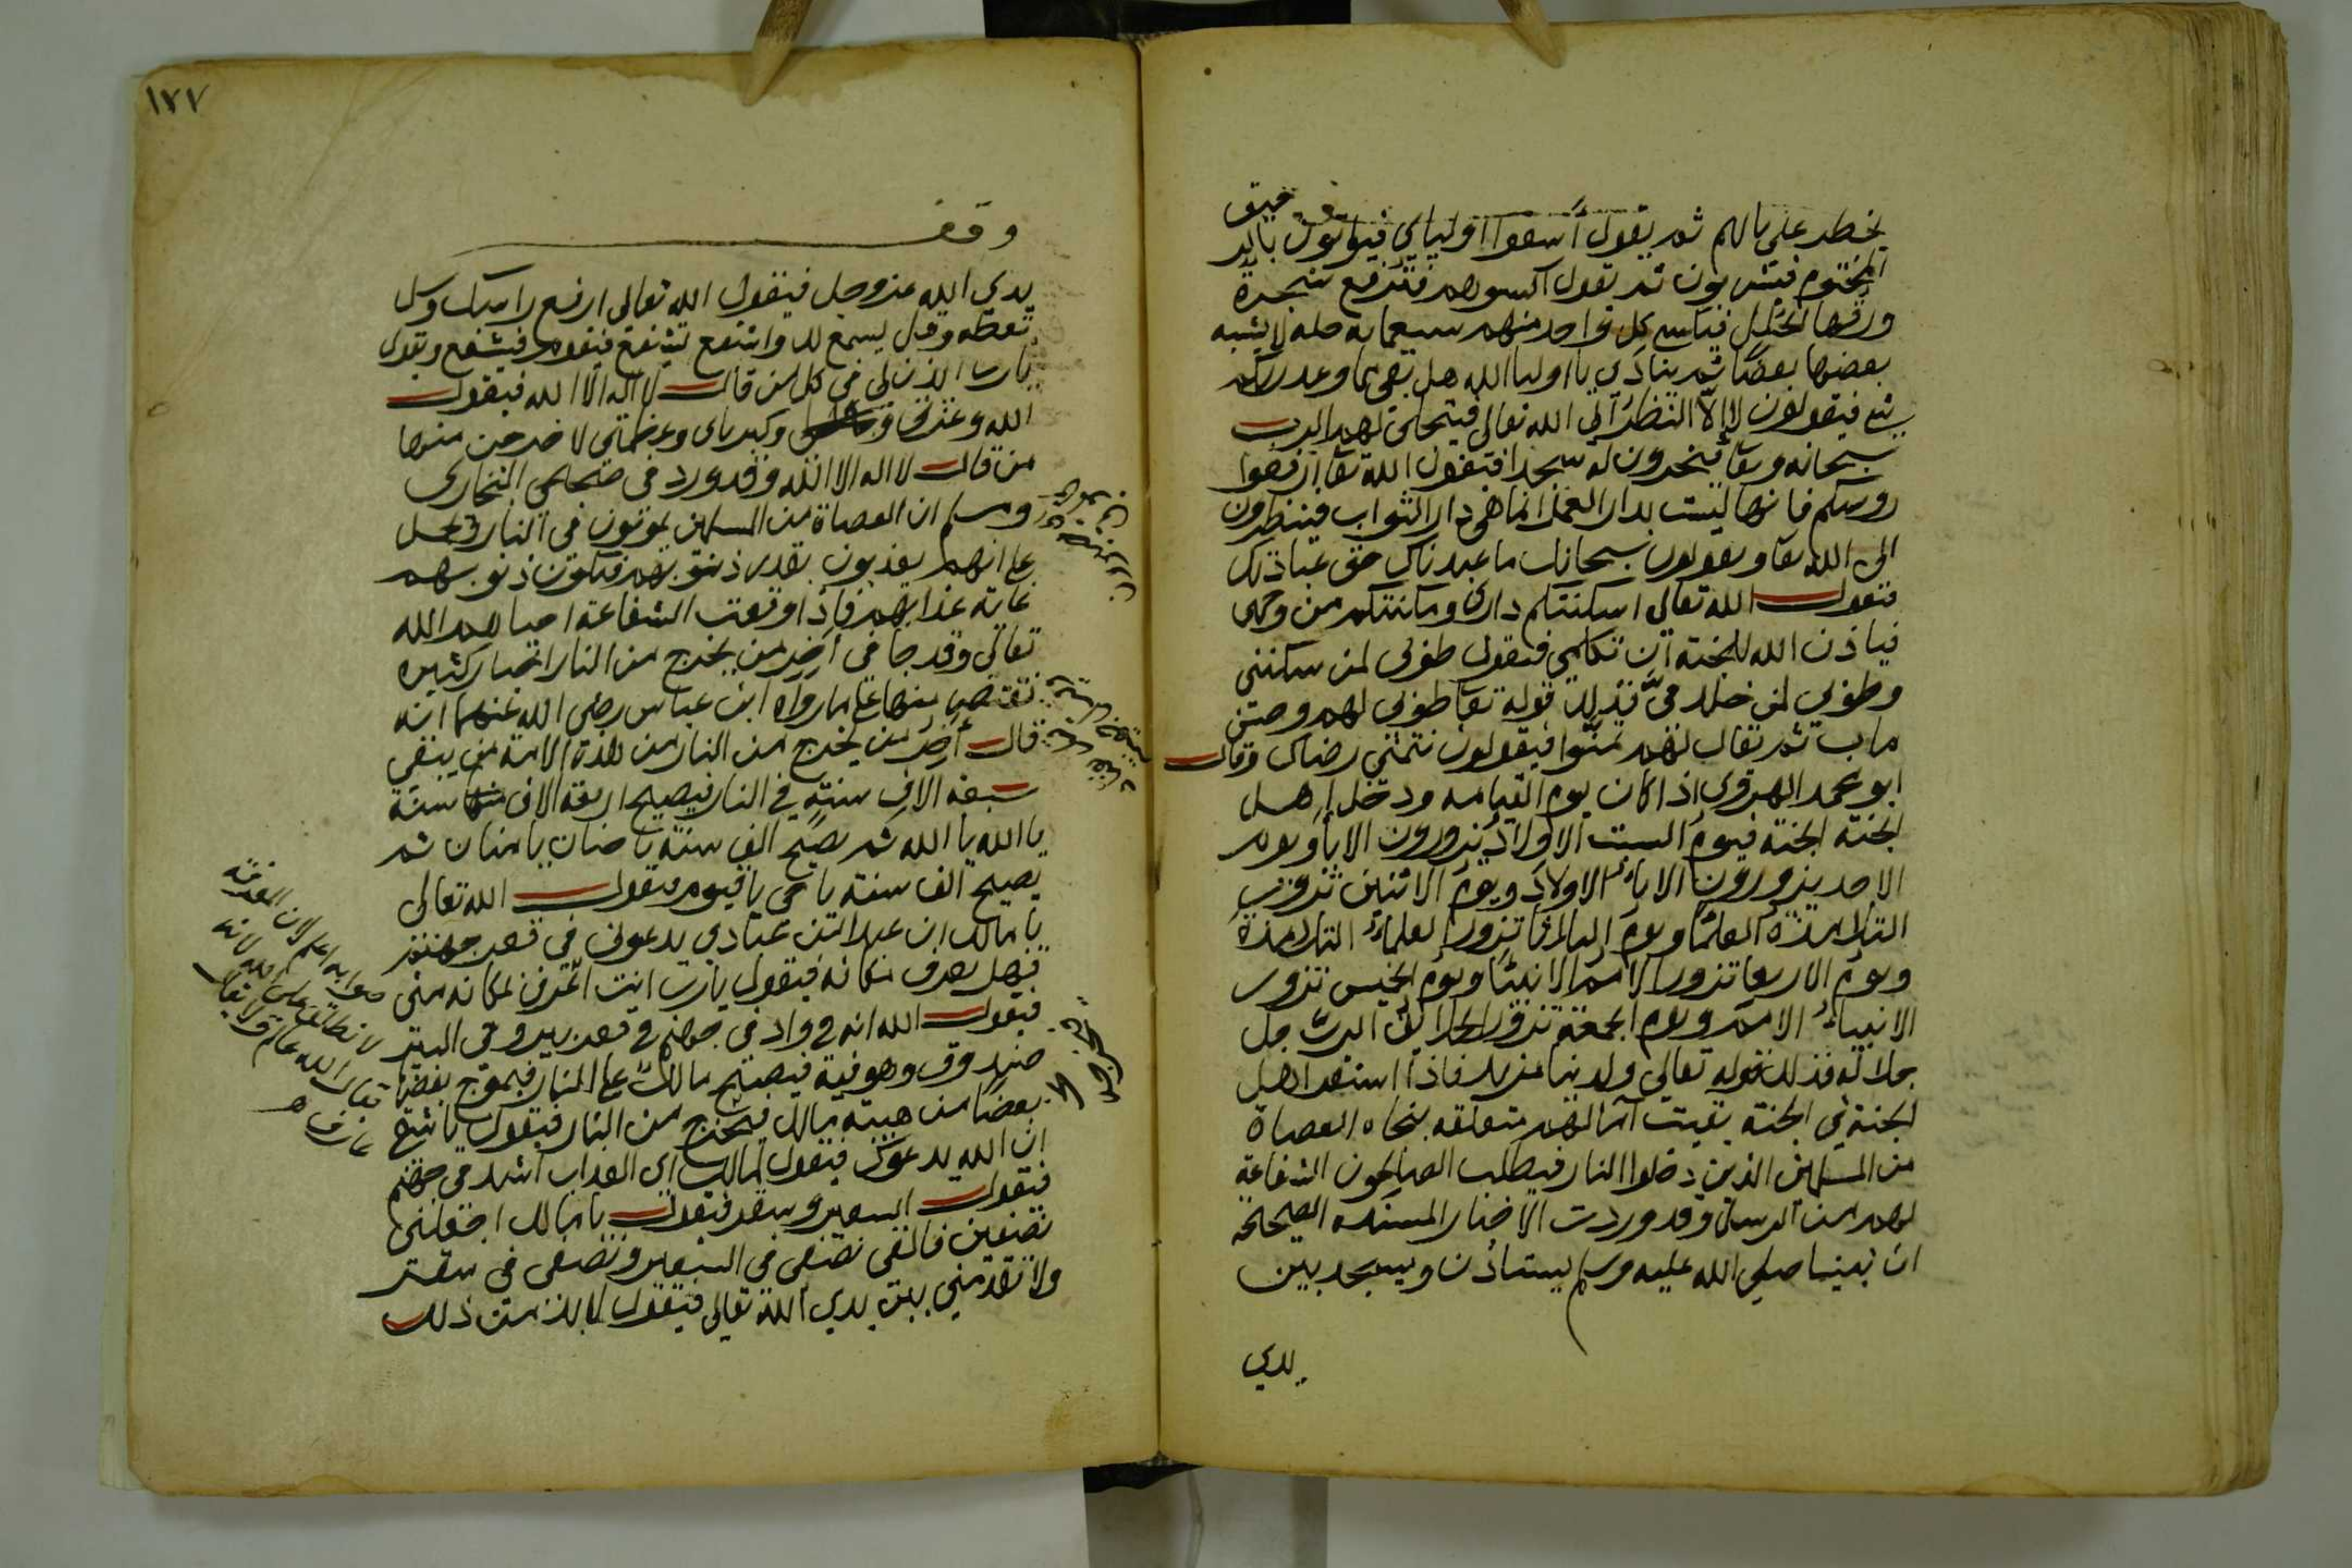 يخطر على بالهم ثم يقول أسقوا اوليائي فيؤتون بالرحيق
المختوم فيشربون ثم يقول اكسوهم فترفع شجرة
ورقها الحلل فيكسي كل واحد منهم سبعمايه حله لا يشبه
بعضها بعضا ثم ينادي يا اوليا الله هل بقى مما وعدكم ربكم
شي فيقولون لا إلا النظر الى الله تعالى فيتجلى لهم الرب
سبحانه وتعا فيخرون له سجدا فيقول الله تعا ارفعوا
روسكم فانها ليست بدار العمل انما هي دار الثواب فينظرون
الى الله تعا ويقولون سبحانك ما عبدناك حق عبادتك
فيقول الله تعالى اسكنتكم داري ومكنتكم من وجهي
فياذن الله للجنة أن تكلمي فتقول طوبى لمن سكنني
وطوبى لمن خلد فيّ فذلك قوله تعا طوبى لهم وحسن
ماب ثم يقال لهم تمنّوا فيقولون نتمنى رضاك وقال
ابو محمد الهروي اذا كان يوم القيامه ودخل اهل
الجنة الجنة فيوم السبت الاولاد يزورون الابا ويوم
الاحد يزورون الاباء الاولاد ويوم الاثنين تزور
التلامذة العلما ويوم الثالثا تزور العلماء التلامذة
ويوم الاربعا تزور الامم الانبيا ويوم الخميس تزور
الانبياء الامم ويوم الجمعة تزور الخلائق الرب جل
جلاله فذلك قوله تعالى ولدينا مزيد فاذا استقر اهل
الجنة في الجنة بقيت آمالهم متعلقه بنجاه العصاة
من المسلمين الذين دخلوا النار فيطلب الصالحون الشفاعة
لهم من الرسل وقد وردت الاخبار المسنده الصحيحه
ان نبينا صلى الله عليه وسلم يستاذن ويسجد بين
يدي
١٧٧
وقف
يدي الله عز وجل فيقول الله تعالى ارفع راسك وسل
تعطه وقل يسمع لك واشفع تشفع فيقوم فيشفع ويقول
يارب ائذن لي في كل من قال لا اله الا الله فيقول
الله وعزتي وكبرياي وعظمتي لاخرجن منها
من قال لا اله الا الله وقد ورد في صحيحي البخاري
ومسلم ان العصاة من المسلمين يموتون في النار وحمل
على انهم يعذبون بقدر ذنوبهم فتكون ذنوبهم
غاية عذابهم فاذا وقعت الشفاعة احياهم الله
تعالى وقد جا في أخر من يخرج من النار اخبار كثيره
نقتصر منها على ما رواه ابن عباس رضى الله عنهما انه
قال أخر من يخرج من النار من هذه الامة من يبقى
سبعة الاف سنة في النار فيصيح اربعة الاف سنة
يا الله يا الله ثم يصيح الف سنة يا حنان يا منان ثم
يصيح الف سنة يا حي يا قيوم فيقول الله تعالى
يا مالك ان عبدا من عبادي يدعوني في قعر جهنم
فهل تعرف مكانه فيقول يارب انت اعرف لمكانه مني
فيقول الله انه في واد في جهنم في قعر بير وفي البير
صندوق وهو فيه فيصيح مالك على النار فيموج بعضها
بعضا من هيبة مالك فيخرج من النار فيقول يا شقي
ان الله يدعوك فيقول لمالك اي العذاب اشد في جهنم
فيقول السعير وسقر فيقول يا مالك اجعلني
نصفين فالقي نصفي في السعير ونصفي في سقر
ولا تقدمني بين يدي الله تعالى فيقول لا بد من ذلك